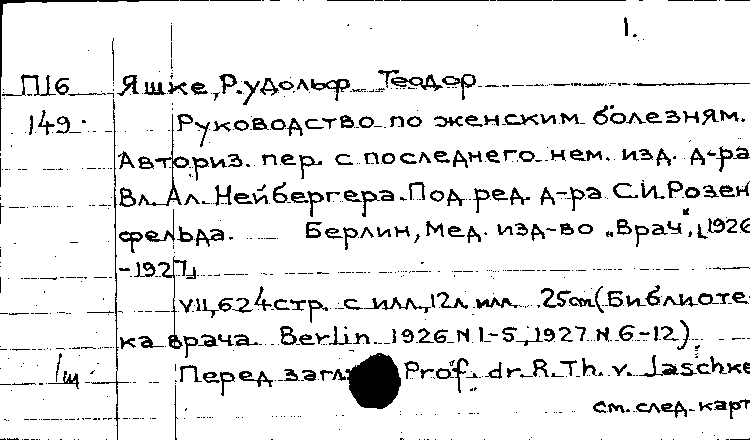 1.
П16 Яшке, Рудольф Теодор
149. Руководство по женским болезням.
Авториз. пер. с последнего нем. изд. д-ра
Вл. Ал. Нейбергера. Под ред. д-ра С.И. Розен
фельда. Берлин, Мед. изд-во „Врач", [1926
-1927]
VII, 624 стр. с илл., 12 л. илл. 25cm (Библиоте-
ка врача. Berlin. 1926 N 1-5, 1927 N 6-12).
Перед загл. Prof. dr. R. Th. v. Jaschke
см. след. карт